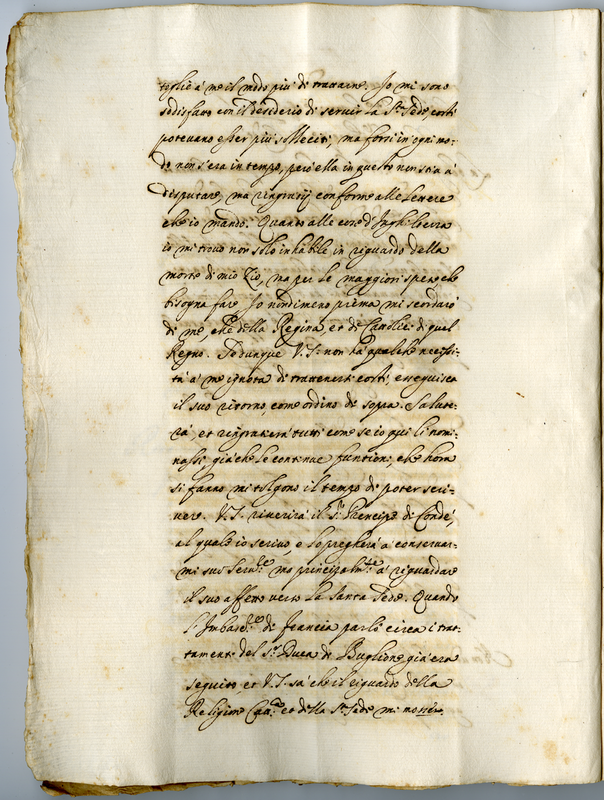 toglie à me il modo più di trattarne. Io mi sono
sodisfatto con il desiderio di servir la S.ta Sede costì
potevano esser più solleciti, ma forsi in ogni mo-
do non s'era in tempo, però ella in questo non stia à
disputare, ma ringratij conforme alle lettere
che io mando. Quanto alle cose d'Inghilterra
io mi trovo non solo inhabile in riguardo della
morte di mio Zio, ma per le maggiori spese, che
bisogna fare. Io nondimeno prima mi scordarò
di me, che della Regina, et de Catolici di quel
Regno. Se dunque V.S. non hà qualche necessi-
tà à me ignota di trattenersi costì, esseguisca
il suo ritorno, come ordino di sopra. Salute-
rà, et ringratierà tutti come se io qui li nomi-
nassi, già che le continue funtioni, che hora
si fanno mi tolgono il tempo di poter scri-
vere. V.S. riverirà il S.r Prencipe di Condé,
al quale io scrivo, e lo pregherà à conservar-
mi suo Ser.re ma principalm.te à riguardare
il suo affetto verso la Santa Sede. Quando
l'Imbasc.re di Francia parlò circa i trat-
tamenti del S.r Duca di Buglione già era
seguito et V.S. sà che il riguardo della
Religione Cat.ca et della S.ta Sede mi